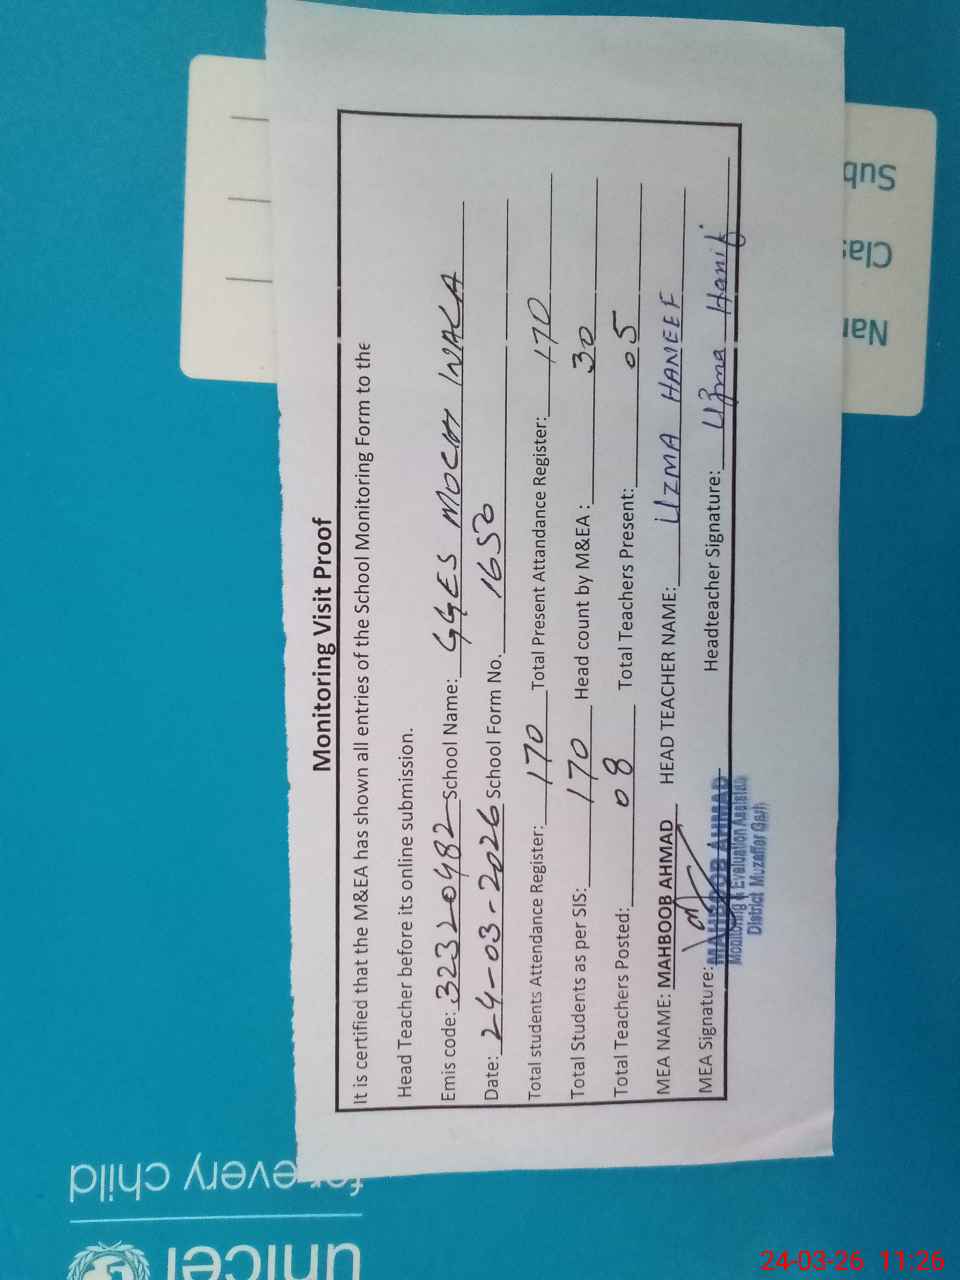 Monitoring Visit Proof
It is certified that the M&EA has shown all entries of the School Monitoring Form to the
Head Teacher before its online submission.
Emis code: 32320482 School Name: GGES MOCHI WALA
Date: 24-03-2026 School Form No. 1650
Total students Attendance Register: 170 Total Present Attandance Register: 170
Total Students as per SIS: 170 Head count by M&EA : 30
Total Teachers Posted: 08 Total Teachers Present: 05
MEA NAME: MAHBOOB AHMAD HEAD TEACHER NAME: UZMA HANEEF
MEA Signature: Headteacher Signature: Uzma Hanif
MAHBOOB AHMAD
Monitoring & Evaluation Assistan
District Muzaffar Garh
unicef
for every child
Nar
Clas
Sub
24-03-26 11:26